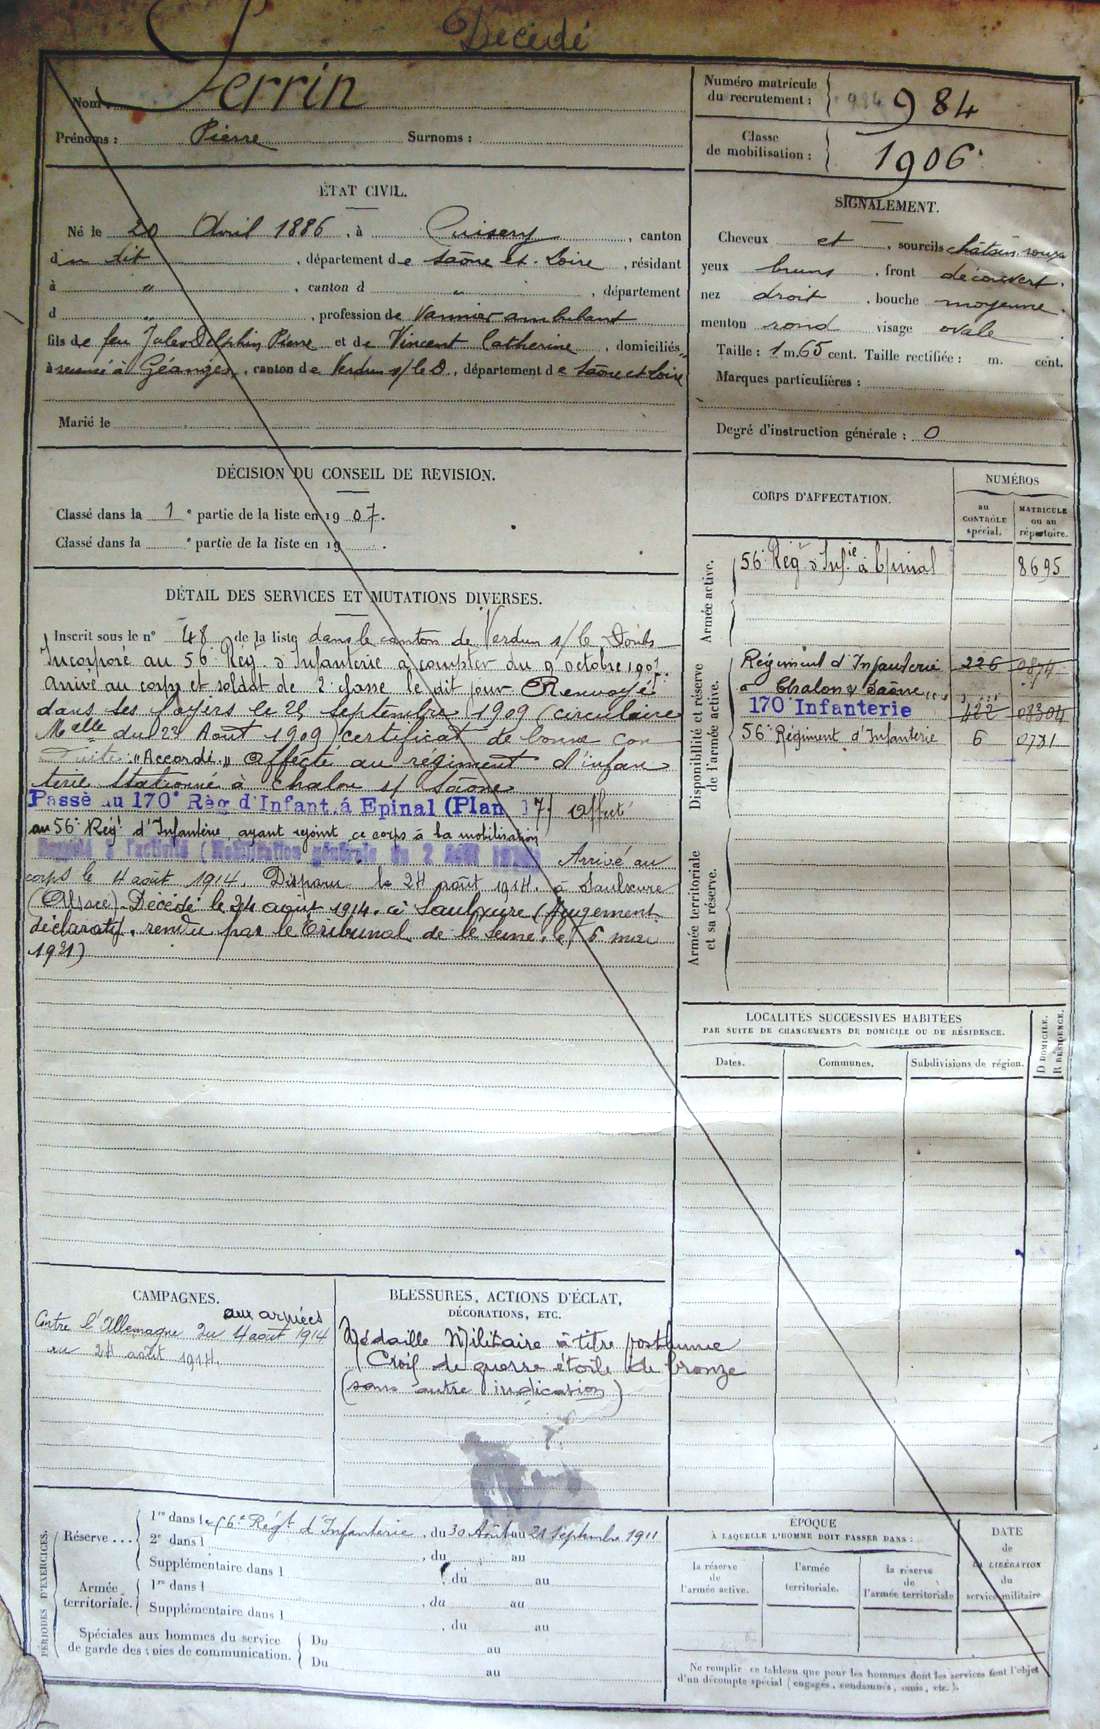 Décédé
Nom : Perrin
Prénoms : Pierre Surnoms :
Numéro matricule
du recrutement : 984 984
Classe
de mobilisation : 1906
ÉTAT CIVIL.
Né le 20 Avril 1886, à Cuisery, canton
du dit, département de Saône et-Loire, résidant
à ", canton d ", département
d ", profession de Vannier ambulant
fils de feu Jules Delphin Pierre et de Vincent Catherine, domiciliés
à Géanges, canton de Verdun s/ le D, département de Saône et Loire
Marié le
SIGNALEMENT.
Cheveux et, sourcils châtain roux
yeux bruns, front découvert.
nez droit, bouche moyenne.
menton rond visage ovale
Taille : 1 m. 65 cent. Taille rectifiée : m. cent.
Marques particulières :
Degré d'instruction générale : 0
DÉCISION DU CONSEIL DE REVISION.
Classé dans la 1e partie de la liste en 1907.
Classé dans la e partie de la liste en 19 .
CORPS D'AFFECTATION.
NUMÉROS
au
CONTRÔLE
spécial.
MATRICULE
ou au
répertoire.
Armée active.
56e Régt d'Infie à Epinal 8695
Disponibilité et réserve
de l'armée active.
Régiment d'Infanterie 226 0874
à Chalon s Saône
170 Infanterie 422 08304
56e Régiment d'Infanterie 6 0731
Armée territoriale
et sa réserve.
DÉTAIL DES SERVICES ET MUTATIONS DIVERSES.
Inscrit sous le no 48 de la liste dans le canton de Verdun s/ le Doubs
Incorporé au 56e Régt d'Infanterie à compter du 9 octobre 1907
arrivé au corps et soldat de 2e classe le dit jour Renvoyé
dans ses foyers le 25 septembre 1909 (circulaire
Melle du 23 Août 1909) certificat de bonne con
duite "Accordé" Affecté au régiment d'infan
terie stationné à Chalon s/ Saône
Passé au 170e Règ d'Infant. á Epinal (Plan 17) Affecté
au 56e Régt d'Infanterie, ayant rejoint ce corps à la mobilisation
Rappelé à l'activité (Mobilisation générale du 2 Août 1914) Arrivé au
corps le 4 août 1914. Disparu le 24 août 1914 à Saulxure
(Alsace). Décédé le 24 août 1914 à Saulxure (Jugement
déclaratif, rendu par le Tribunal de la Seine, le 6 mai
1921)
LOCALITÉS SUCCESSIVES HABITÉES
PAR SUITE DE CHANGEMENTS DE DOMICILE OU DE RÉSIDENCE.
Dates. Communes. Subdivisions de région.
D DOMICILE.
R RÉSIDENCE.
CAMPAGNES.
aux armées
Contre l'Allemagne du 4 août 1914
au 24 août 1914.
BLESSURES, ACTIONS D'ÉCLAT,
DÉCORATIONS, ETC.
Médaille Militaire à titre posthume
Croix de guerre étoile de bronze
(sans autre indication)
PÉRIODES D'EXERCICES.
Réserve . . .
1re dans le 56e Régt d'Infanterie, du 30 Août au 21 septembre 1911
2e dans l , du au
Supplémentaire dans l , du au
Armée
territoriale.
1re dans l , du au
Supplémentaire dans l , du au
Spéciales aux hommes du service
de garde des voies de communication.
Du au
Du au
ÉPOQUE
À LAQUELLE L'HOMME DOIT PASSER DANS :
la réserve
de
l'armée active.
l'armée
territoriale.
la réserve
de
l'armée territoriale
DATE
de
LA LIBÉRATION
du
service militaire
Ne remplir ce tableau que pour les hommes dont les services font l'objet
d'un décompte spécial (engagés, condamnés, omis, etc.).